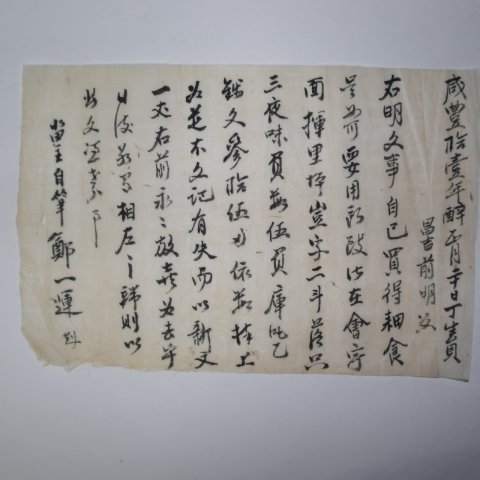 咸豊拾壹年辛酉正月二十日丁生員
昌吉前明文
右明文事自己買得耕食
是如可要用所致以在會寧
面揮里坪豈字二斗落只
三夜味負數伍負庫乙
錢文參拾伍兩依數捧上
文記有失而以新文
一丈右前永〻放賣爲去乎
日後若有相左之弊則以
此文憑
畓主自筆鄭一運